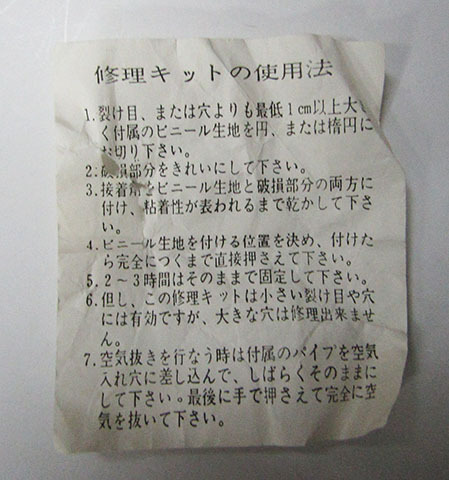 修理キットの使用法
1.裂け目、または穴よりも最低1cm以上大き
く付属のビニール生地を円、または楕円に
お切り下さい。
2.破損部分をきれいにして下さい。
3.接着剤をビニール生地と破損部分の両方に
付け、粘着性が表われるまで乾かして下さ
い。
4.ビニール生地を付ける位置を決め、付けた
ら完全につくまで直接押さえて下さい。
5.2〜3時間はそのままで固定して下さい。
6.但し、この修理キットは小さい裂け目や穴
には有効ですが、大きな穴は修理出来ませ
ん。
7.空気抜きを行なう時は付属のパイプを空気
入れ穴に差し込んで、しばらくそのままに
して下さい。最後に手で押さえて完全に空
気を抜いて下さい。